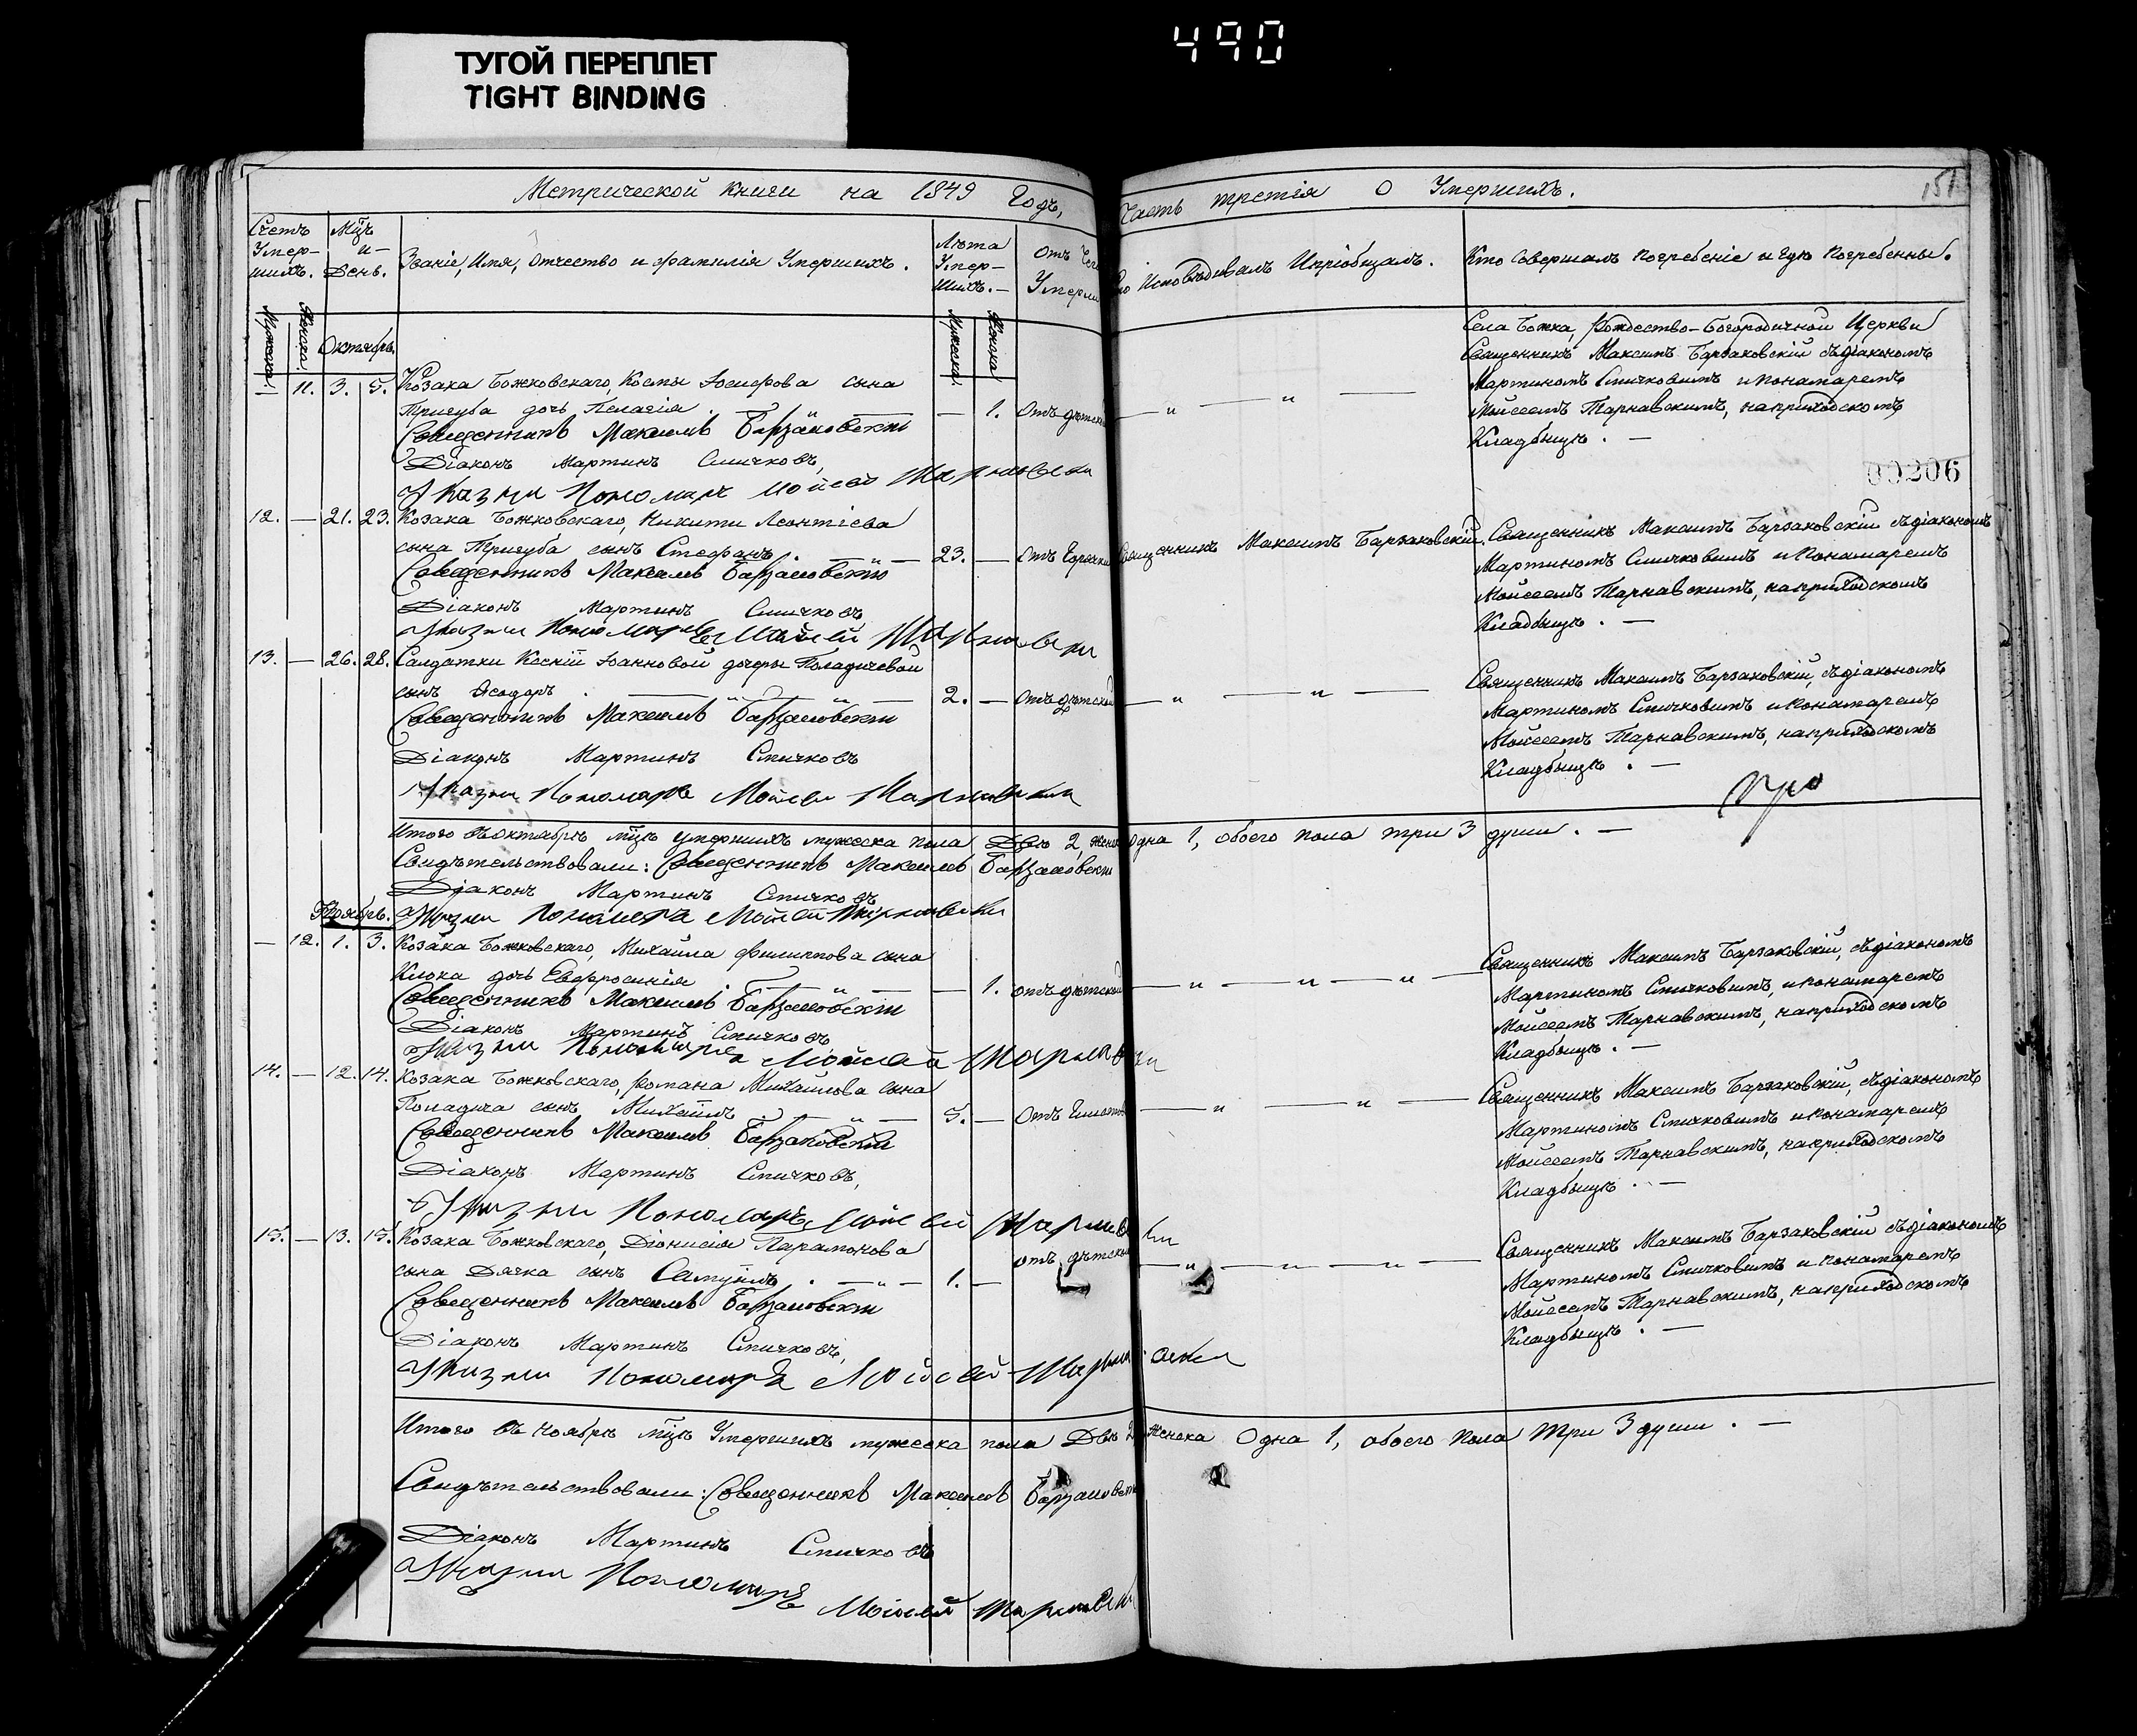 490
ТУГОЙ ПЕРЕПЛЕТ
TIGHT BINDING
Метрической книги на 1849 Годъ, Часть третія О Умершихъ.
151
Счетъ Умер-шихъ.
Мцъ и День.
Званіе, Имя, Отчество и Фамилія Умершихъ.
Лѣта Умер-шихъ.
Отъ Чего
Исповѣдывалъ И пріобщалъ.
Кто Совершалъ Погребеніе и Гдѣ Погребенны.
Мужеска. Женска. Октябрь. Мужеска Женска
Села Божка, Рождество-Богородичной Церкви
Священникъ Максимъ Барзаковскій съ діакономъ
— 11. 3. 5. Козака Божковскаго, Космы Іосифова сына
Мартиномъ Спичковымъ и Понамаремъ
Пригуба дочь Пелагія. — 1. Отъ дѣтской
Мойсеемъ Тарнавскимъ, на приходскомъ
Священникъ Максимъ Барзаковскій
Кладбищѣ. —
Діаконъ Мартинъ Спичковъ,
Пономарь Мойсей Тарнавскій
00206
12. — 21. 23. Козака Божковскаго, Никити Леонтіева
сына Пригуба сынъ Стефанъ. — 23. — Отъ Горячки Священникъ Максимъ Барзаковскій.
Священникъ Максимъ Барзаковскій съ діакономъ
Мартиномъ Спичковымъ и Понамаремъ
Мойсеемъ Тарнавскимъ, на приходскомъ
Кладбищѣ. —
Священникъ Максимъ Барзаковскій
Діаконъ Мартинъ Спичковъ
Пономарь Мойсей Тарнавскій
13. — 26. 28. Салдатки Ксеніи Іоанновой дочери Поладичевой
сынъ Ѳеодоръ. — 2. — Отъ дѣтской
Священникъ Максимъ Барзаковскій, съ діакономъ
Мартиномъ Спичковымъ и Понамаремъ
Мойсеемъ Тарнавскимъ, на приходскомъ
Кладбищѣ. —
Священникъ Максимъ Барзаковскій
Діаконъ Мартинъ Спичковъ
Пономарь Мойсей Тарнавскій
Итого въ октябрѣ мцѣ умершихъ мужеска пола Двѣ 2, женска Одна 1, обоего пола три 3 души. —
Свидѣтельствовали: Священникъ Максимъ Барзаковскій
Діаконъ Мартинъ Спичковъ
Пономарь Мойсей Тарнавскій
Ноябрь.
— 12. 1. 3. Козака Божковскаго, Михаила Филиппова сына
Клюка дочь Евфросинія. — 1. отъ дѣтской
Священникъ Максимъ Барзаковскій, съ діакономъ
Мартиномъ Спичковымъ, и понамаремъ
Мойсеемъ Тарнавскимъ, на приходскомъ
Кладбищѣ. —
Священникъ Максимъ Барзаковскій
Діаконъ Мартинъ Спичковъ
Пономарь Мойсей Тарнавскій
14. — 12. 14. Козака Божковскаго, Романа Михайлова сына
Поладича сынъ Михаилъ — 5. — Отъ
Священникъ Максимъ Барзаковскій, съ діакономъ
Мартиномъ Спичковымъ и понамаремъ
Мойсеемъ Тарнавскимъ, на приходскомъ
Кладбищѣ. —
Священникъ Максимъ Барзаковскій
Діаконъ Мартинъ Спичковъ,
Пономарь Мойсей Тарнавскій
15. — 13. 15. Козака Божковскаго, Діонисія Парамонова
сына Дячка сынъ Самуилъ. — 1. — отъ дѣтской
Священникъ Максимъ Барзаковскій съ діакономъ
Мартиномъ Спичковымъ и понамаремъ
Мойсеемъ Тарнавскимъ, на приходскомъ
Кладбищѣ. —
Священникъ Максимъ Барзаковскій
Діаконъ Мартинъ Спичковъ,
Пономарь Мойсей Тарнавскій
Итого въ ноябрѣ мцѣ Умершихъ мужеска пола Двѣ 2, женска Одна 1, обоего пола Три 3 души. —
Свидѣтельствовали: Священникъ Максимъ Барзаковскій
Діаконъ Мартинъ Спичковъ
Пономарь Мойсей Тарнавскій